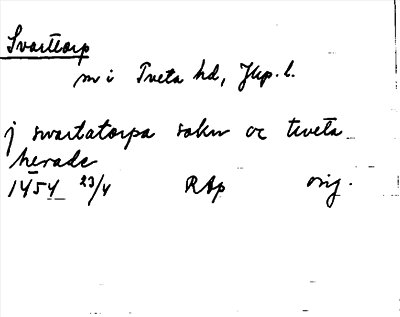 Svarttorp
m i Tveta hd, Jkp. l.
j swartatorpa sokn oc tweta
herade
1454 23/4 RAp orig.